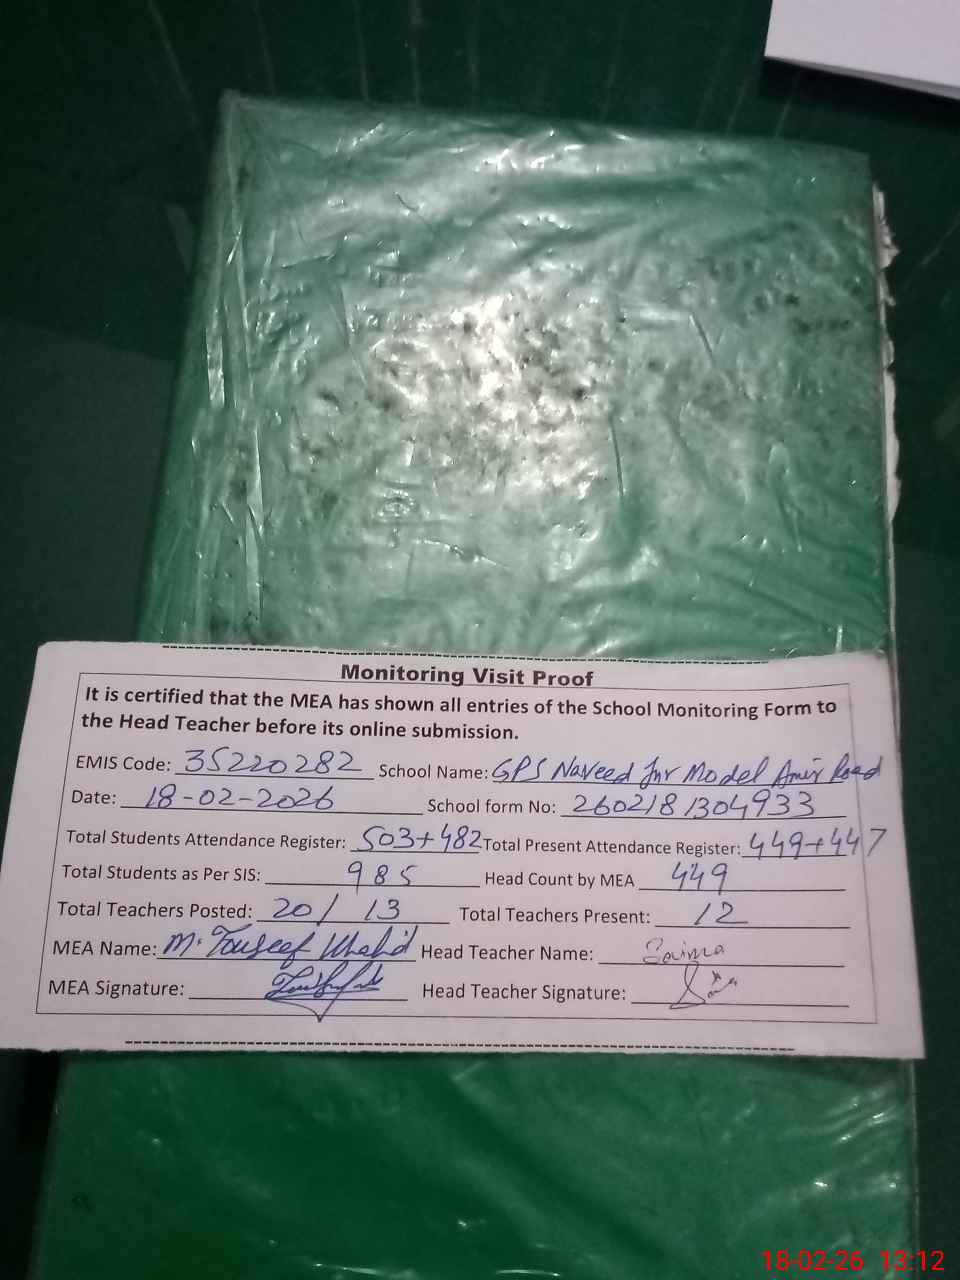 Monitoring Visit Proof
It is certified that the MEA has shown all entries of the School Monitoring Form to
the Head Teacher before its online submission.
EMIS Code: 35220282 School Name: GPS Naveed Jnr Model Amir Road
Date: 18-02-2026 School form No: 2602181304933
Total Students Attendance Register: 503+482 Total Present Attendance Register: 449+447
Total Students as Per SIS: 985 Head Count by MEA 449
Total Teachers Posted: 20/ 13 Total Teachers Present: 12
MEA Name: M. Touseef Khalid Head Teacher Name: Saima
MEA Signature: Head Teacher Signature:
18-02-26 13:12